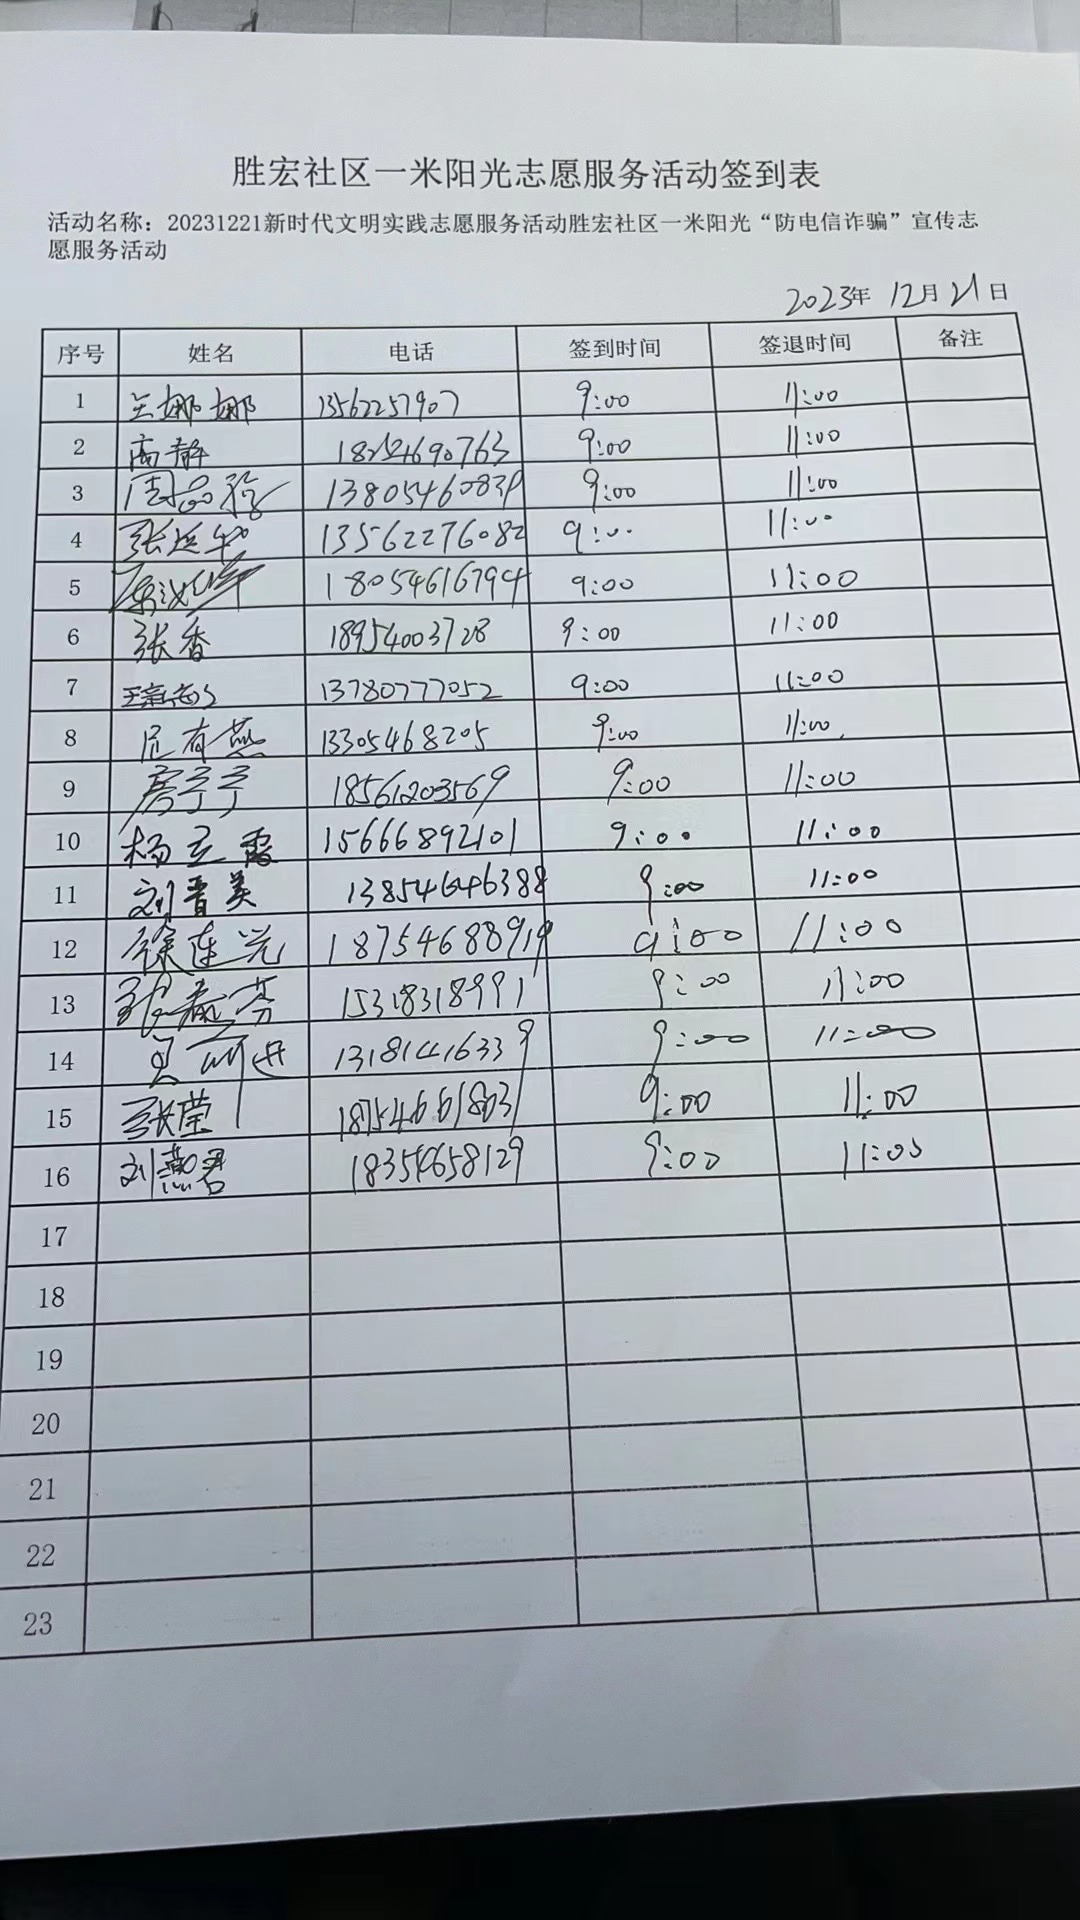 胜宏社区一米阳光志愿服务活动签到表
活动名称：20231221新时代文明实践志愿服务活动胜宏社区一米阳光“防电信诈骗”宣传志
愿服务活动
2023年 12月21日
序号 姓名 电话 签到时间 签退时间 备注
1 兰娜娜 13562257907 9:00 11:00
2 高静 9:00 11:00
3 13805460839 9:00 11:00
4 张延华 13562276082 9:00 11:00
5 18054616794 9:00 11:00
6 张香 18954003728 9:00 11:00
7 13780777052 9:00 11:00
8 尼有燕 13305468205 9:00 11:00
9 房宁宁 18561203569 9:00 11:00
10 杨立霞 15666892101 9:00 11:00
11 刘晋美 13854646388 9:00 11:00
12 徐连光 18754688919 9:00 11:00
13 15318318991 9:00 11:00
14 9:00 11:00
15 张莹 18754661803 9:00 11:00
16 刘燕君 18354658129 9:00 11:00
17
18
19
20
21
22
23